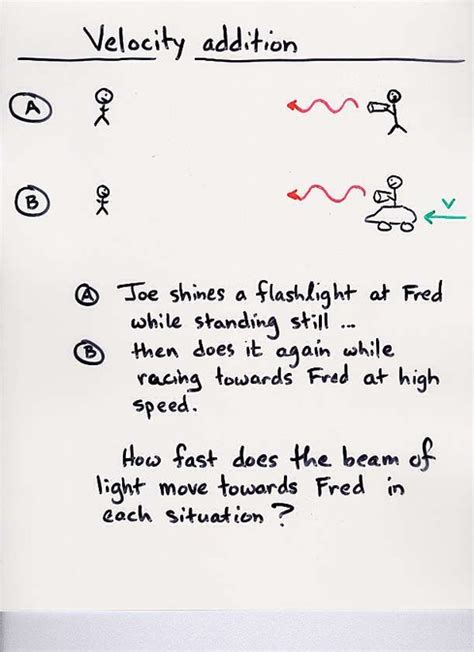 Velocity addition
A
B
V
A Joe shines a flashlight at Fred
while standing still ...
B then does it again while
racing towards Fred at high
speed.
How fast does the beam of
light move towards Fred in
each situation?